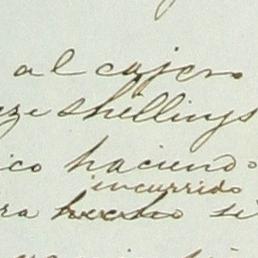 al cajero
ze shellings
ico haciendo
incurrido
ra hecho si